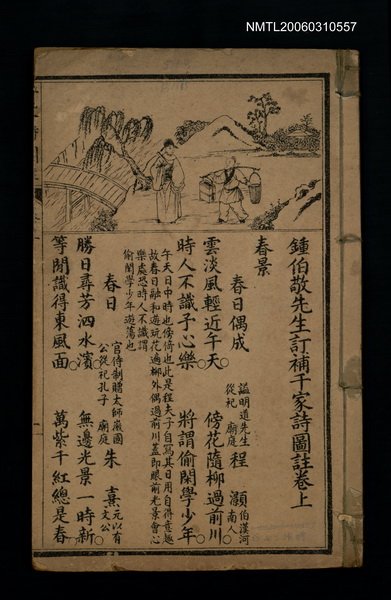 NMTL20060310557
鍾伯敬先生訂補千家詩圖註卷上
春景
春日偶成
謚明道先生
從祀廟庭
程顥
伯淳河
南人
雲淡風輕近午天
傍花隨柳過前川
時人不識予心樂
將謂偷閑學少年
午天日中時也傍倚也此是程夫子自寫其日用自得意趣
故春日融和遊玩花邊柳外偶過前川蓋即眼前光景會心
樂處恐時人不識謂
偷閑學少年遊蕩也
春日
官侍制贈太師徽國
公從祀孔子廟庭
朱熹
元以有
文公
勝日尋芳泗水濱
無邊光景一時新
等閒識得東風面
萬紫千紅總是春